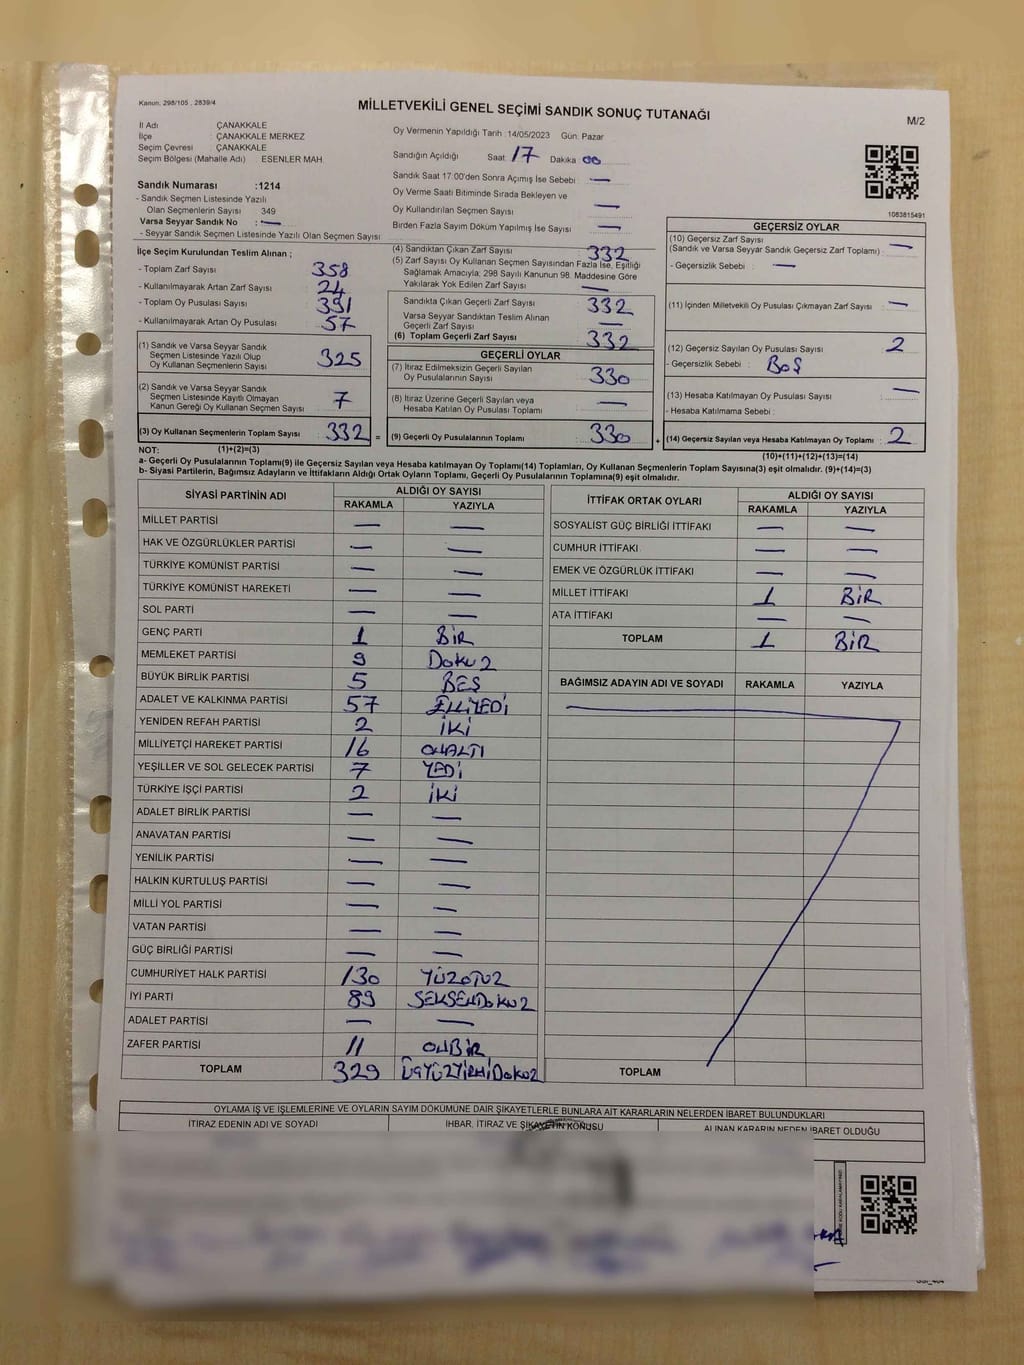 Kanun. 298/105 , 2839/4
MİLLETVEKİLİ GENEL SEÇİMİ SANDIK SONUÇ TUTANAĞI
M/2
İl Adı : ÇANAKKALE
İlçe : ÇANAKKALE MERKEZ
Seçim Çevresi : ÇANAKKALE
Seçim Bölgesi (Mahalle Adı) ESENLER MAH.
Oy Vermenin Yapıldığı Tarih : 14/05/2023 Gün: Pazar
Sandığın Açıldığı Saat 17 Dakika 00
Sandık Saat 17:00'den Sonra Açımış İse Sebebi : —
Oy Verme Saati Bitiminde Sırada Bekleyen ve
Oy Kullandırılan Seçmen Sayısı —
Birden Fazla Sayım Döküm Yapılmış İse Sayısı —
Sandık Numarası :1214
- Sandık Seçmen Listesinde Yazılı
Olan Seçmenlerin Sayısı 349
Varsa Seyyar Sandık No : —
- Seyyar Sandık Seçmen Listesinde Yazılı Olan Seçmen Sayısı
1083815491
İlçe Seçim Kurulundan Teslim Alınan ;
- Toplam Zarf Sayısı 358
- Kullanılmayarak Artan Zarf Sayısı : 24
- Toplam Oy Pusulası Sayısı : 391
- Kullanılmayarak Artan Oy Pusulası : 57
(1) Sandık ve Varsa Seyyar Sandık
Seçmen Listesinde Yazılı Olup
Oy Kullanan Seçmenlerin Sayısı 325
(2) Sandık ve Varsa Seyyar Sandık
Seçmen Listesinde Kayıtlı Olmayan
Kanun Gereği Oy Kullanan Seçmen Sayısı 7
(3) Oy Kullanan Seçmenlerin Toplam Sayısı : 332 =
(4) Sandıktan Çıkan Zarf Sayısı 332
(5) Zarf Sayısı Oy Kullanan Seçmen Sayısından Fazla İse, Eşitliği
Sağlamak Amacıyla; 298 Sayılı Kanunun 98. Maddesine Göre
Yakılarak Yok Edilen Zarf Sayısı —
Sandıkta Çıkan Geçerli Zarf Sayısı : 332
Varsa Seyyar Sandıktan Teslim Alınan
Geçerli Zarf Sayısı —
(6) Toplam Geçerli Zarf Sayısı : 332
GEÇERLİ OYLAR
(7) İtiraz Edilmeksizin Geçerli Sayılan
Oy Pusulalarının Sayısı 330
(8) İtiraz Üzerine Geçerli Sayılan veya
Hesaba Katılan Oy Pusulası Toplamı —
(9) Geçerli Oy Pusulalarının Toplamı : 330 +
GEÇERSİZ OYLAR
(10) Geçersiz Zarf Sayısı
(Sandık ve Varsa Seyyar Sandık Geçersiz Zarf Toplamı) : —
- Geçersizlik Sebebi : —
(11) İçinden Milletvekili Oy Pusulası Çıkmayan Zarf Sayısı : —
(12) Geçersiz Sayılan Oy Pusulası Sayısı : 2
- Geçersizlik Sebebi : BOŞ
(13) Hesaba Katılmayan Oy Pusulası Sayısı —
- Hesaba Katılmama Sebebi :
(14) Geçersiz Sayılan veya Hesaba Katılmayan Oy Toplamı : 2
NOT: (1)+(2)=(3)
(10)+(11)+(12)+(13)=(14)
a- Geçerli Oy Pusulalarının Toplamı(9) ile Geçersiz Sayılan veya Hesaba katılmayan Oy Toplamı(14) Toplamları, Oy Kullanan Seçmenlerin Toplam Sayısına(3) eşit olmalıdır. (9)+(14)=(3)
b- Siyasi Partilerin, Bağımsız Adayların ve İttifakların Aldığı Oyların Toplamı, Geçerli Oy Pusulalarının Toplamına(9) eşit olmalıdır.
SİYASİ PARTİNİN ADI ALDIĞI OY SAYISI
RAKAMLA YAZIYLA
MİLLET PARTİSİ — —
HAK VE ÖZGÜRLÜKLER PARTİSİ — —
TÜRKİYE KOMÜNİST PARTİSİ — —
TÜRKİYE KOMÜNİST HAREKETİ — —
SOL PARTİ — —
GENÇ PARTİ 1 BİR
MEMLEKET PARTİSİ 9 DOKUZ
BÜYÜK BİRLİK PARTİSİ 5 BEŞ
ADALET VE KALKINMA PARTİSİ 57 ELLİYEDİ
YENİDEN REFAH PARTİSİ 2 İKİ
MİLLİYETÇİ HAREKET PARTİSİ 16 ONALTI
YEŞİLLER VE SOL GELECEK PARTİSİ 7 YEDİ
TÜRKİYE İŞÇİ PARTİSİ 2 İKİ
ADALET BİRLİK PARTİSİ — —
ANAVATAN PARTİSİ — —
YENİLİK PARTİSİ — —
HALKIN KURTULUŞ PARTİSİ — —
MİLLİ YOL PARTİSİ — —
VATAN PARTİSİ — —
GÜÇ BİRLİĞİ PARTİSİ — —
CUMHURİYET HALK PARTİSİ 130 YÜZOTUZ
İYİ PARTİ 89 SEKSENDOKUZ
ADALET PARTİSİ — —
ZAFER PARTİSİ 11 ONBİR
TOPLAM 329 ÜÇYÜZYİRMİDOKUZ
İTTİFAK ORTAK OYLARI ALDIĞI OY SAYISI
RAKAMLA YAZIYLA
SOSYALİST GÜÇ BİRLİĞİ İTTİFAKI — —
CUMHUR İTTİFAKI — —
EMEK VE ÖZGÜRLÜK İTTİFAKI — —
MİLLET İTTİFAKI 1 BİR
ATA İTTİFAKI — —
TOPLAM 1 BİR
BAĞIMSIZ ADAYIN ADI VE SOYADI RAKAMLA YAZIYLA
TOPLAM
OYLAMA İŞ VE İŞLEMLERİNE VE OYLARIN SAYIM DÖKÜMÜNE DAİR ŞİKAYETLERLE BUNLARA AİT KARARLARIN NELERDEN İBARET BULUNDUKLARI
İTİRAZ EDENİN ADI VE SOYADI İHBAR, İTİRAZ VE ŞİKAYETİN KONUSU ALINAN KARARIN NEDEN İBARET OLDUĞU